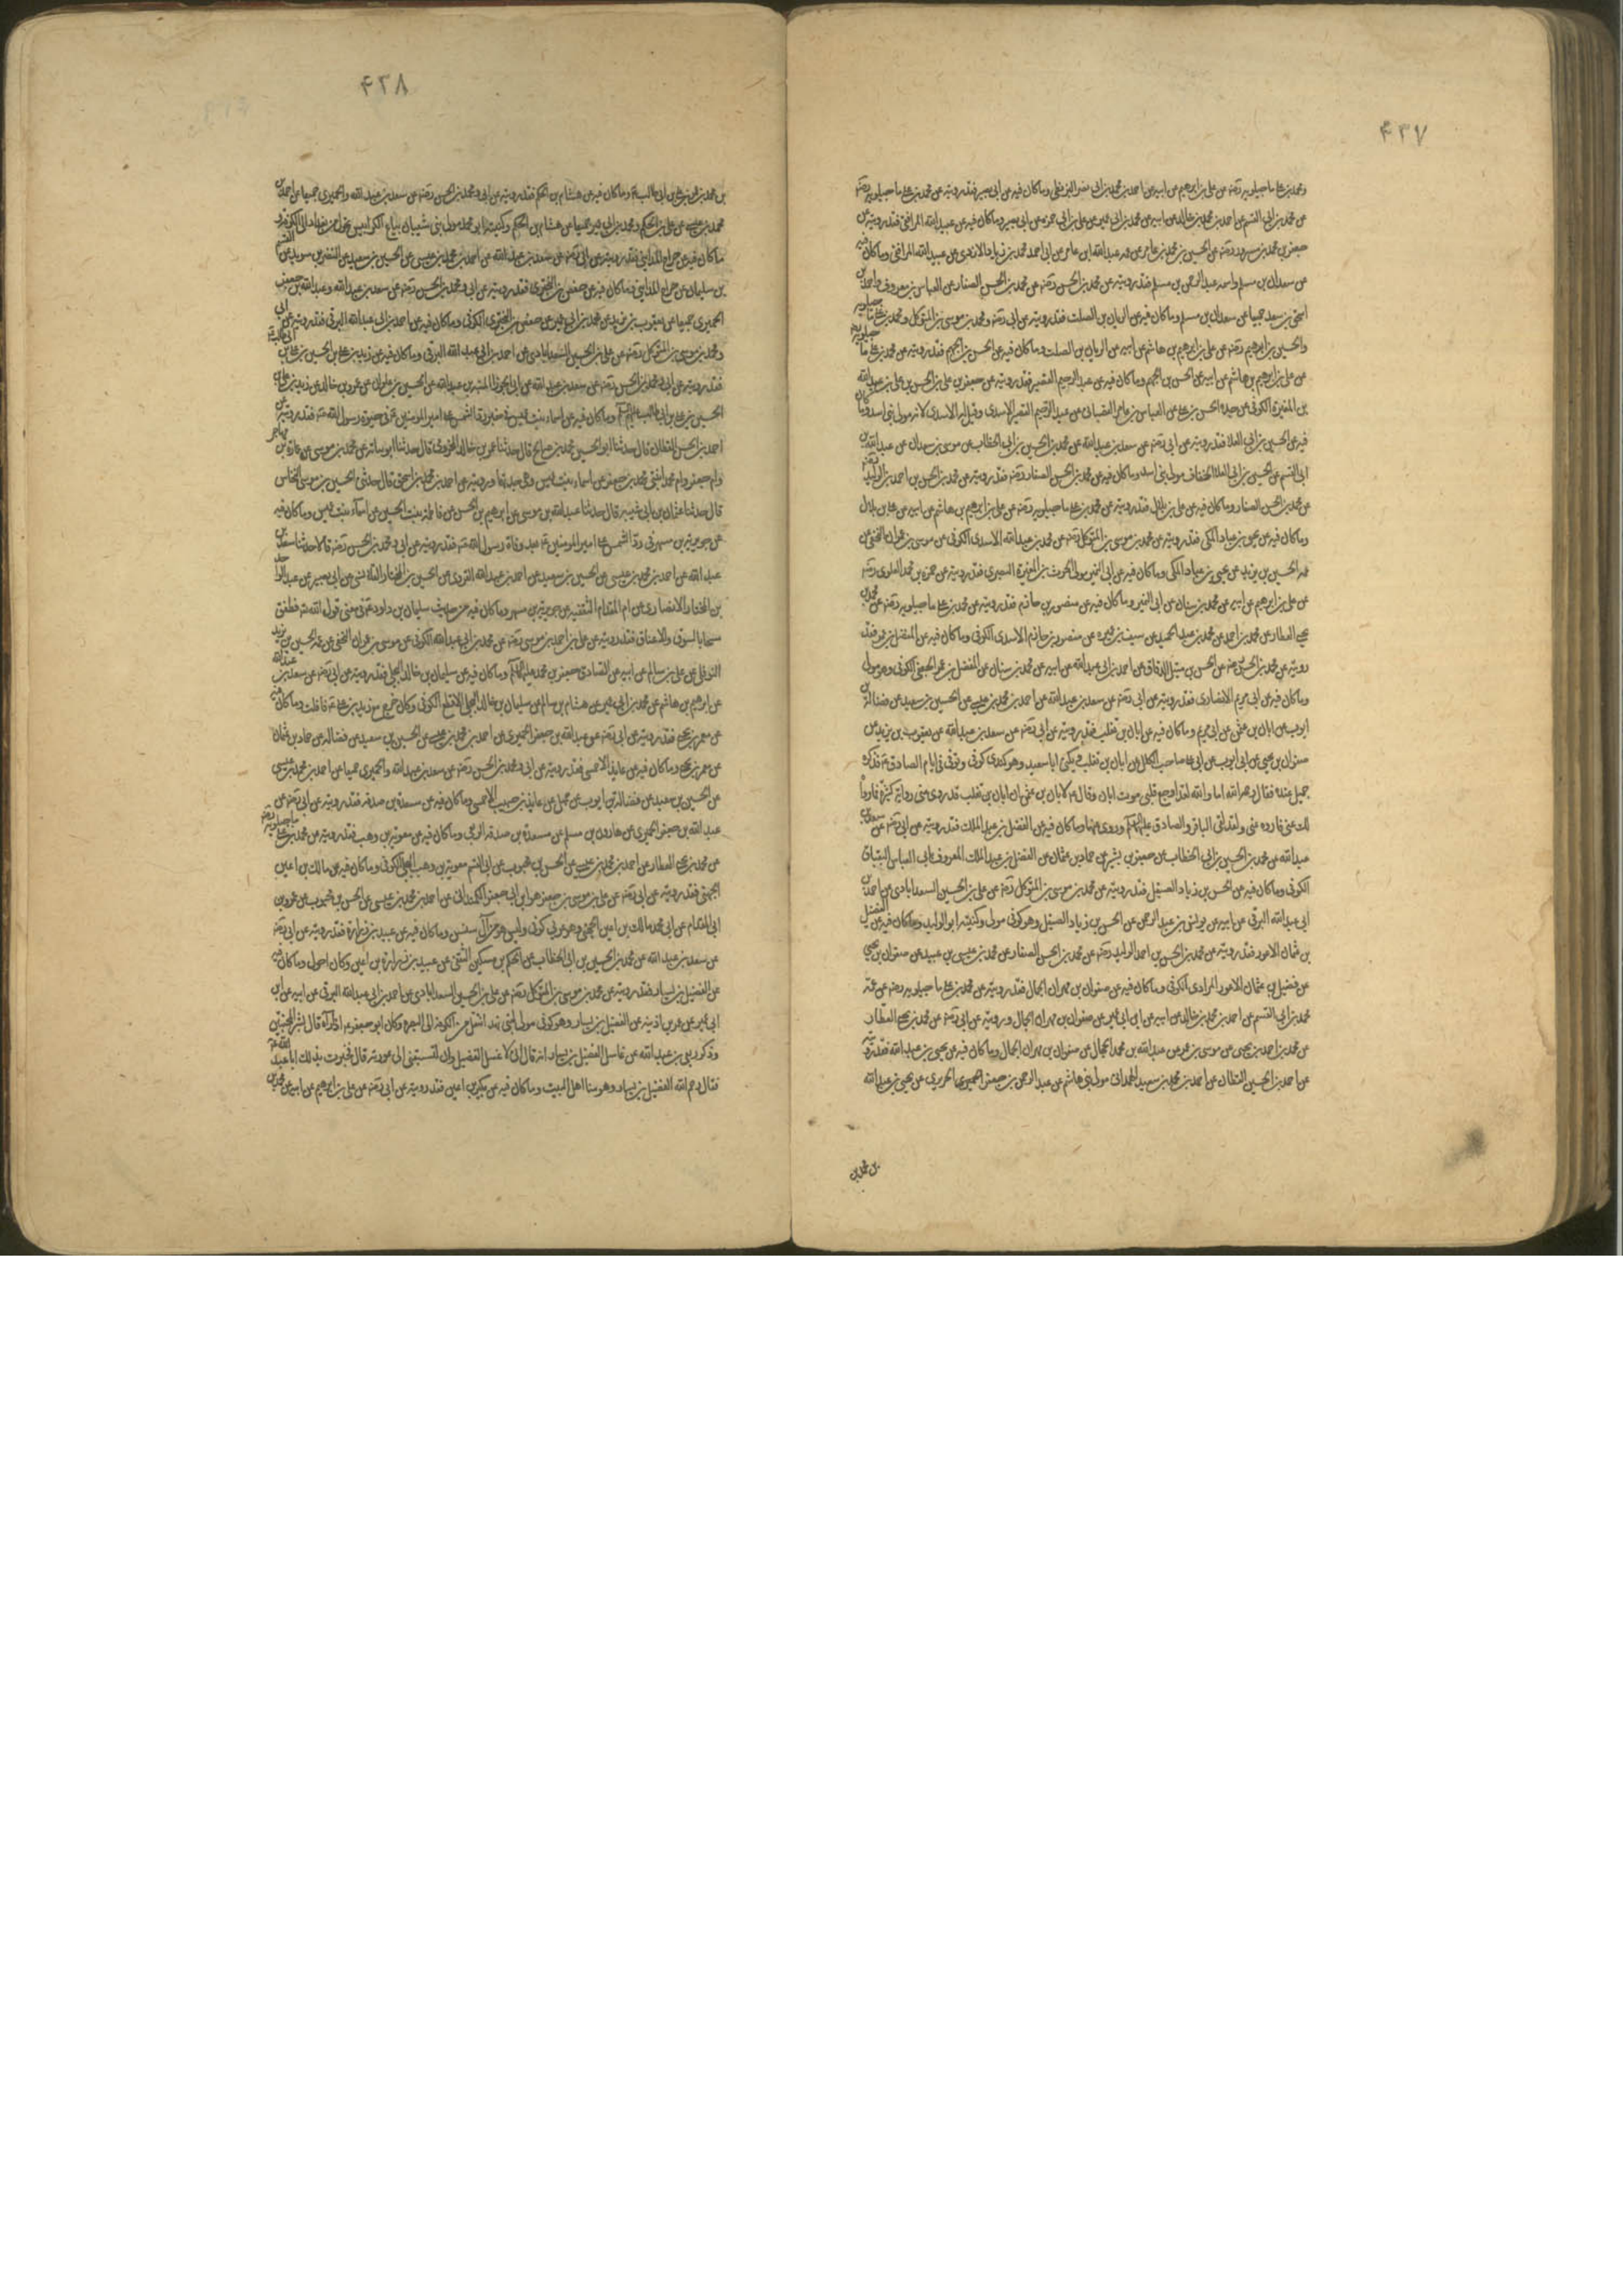 ۴۳۷
ومحمد بن علي ماجيلويه رضه عن علي بن ابرهيم عن ابيه عن احمد بن محمد بن ابي نصر البزنطي وما كان فيه عن ابي بصير فقد رويته عن محمد بن علي ماجيلويه رضه
عن محمد بن ابي القسم عن احمد بن محمد بن خالد عن ابيه عن محمد بن ابي عمير عن علي بن ابي حمزه عن ابي بصير وما كان فيه عن عبيد الله المرافقي فقد رويته عن
جعفر بن محمد بن مسرور رضه عن الحسين بن محمد بن عامر عن عمه عبد الله ابن عامر عن ابي احمد محمد بن زياد الازدي عن عبيد الله المرافقي وما كان فيه
عن سعدان بن مسلم واسمه عبد الرحمن بن مسلم فقد رويته عن محمد بن الحسن رضه عن محمد بن الحسن الصفار عن العباس بن معروف واحمد بن
اسحق بن سعد جميعا عن سعدان بن مسلم وما كان فيه عن الريان بن الصلت فقد رويته عن ابي رضه ومحمد بن موسى بن المتوكل ومحمد بن علي ماجيلويه
والحسين بن ابرهيم رضه عن علي بن ابرهيم بن هاشم عن ابيه عن الريان بن الصلت وما كان فيه عن الحسن بن الجهم فقد رويته عن محمد بن علي ماجيلويه
عن علي بن ابرهيم بن هاشم عن ابيه عن الحسن بن الجهم وما كان فيه عن عبد الرحيم القصير فقد رويته عن جعفر بن علي بن الحسن بن علي بن عبد الله
بن المغيرة الكوفي عن جده الحسن بن علي عن العباس بن عامر القصباني عن عبد الرحيم القصير الاسدي وقيل له الاسدي لانه مولى بني اسد وما كان
فيه عن الحسين بن ابي العلا فقد رويته عن ابي رضه عن سعد بن عبد الله عن محمد بن الحسين بن ابي الخطاب عن موسى بن سعدان عن عبد الله بن
ابي القسم عن الحسين بن ابي العلا الخفاف مولى بني اسد وما كان فيه عن محمد بن الحسن الصفار رضه فقد رويته عن محمد بن الحسن بن احمد بن الوليد رضه
عن محمد بن الحسن الصفار وما كان فيه عن علي بن بلال فقد رويته عن محمد بن علي ماجيلويه رضه عن علي بن ابرهيم بن هاشم عن ابيه عن علي بن بلال
وما كان فيه عن يحيى بن عباد المكي فقد رويته عن محمد بن موسى بن المتوكل رضه عن محمد بن عبد الله الاسدي الكوفي عن موسى بن عمران النخعي عن
عمه الحسين بن يزيد عن يحيى بن عباد المكي وما كان فيه عن ابي النمير مولى الحرث بن المغيرة النصري فقد رويته عن حمزه بن محمد العلوي رضه
عن علي بن ابرهيم عن ابيه عن محمد بن سنان عن ابي النمير وما كان فيه عن منصور بن حازم فقد رويته عن محمد بن علي ماجيلويه رضه عن محمد بن
يحيى العطار عن محمد بن احمد عن محمد بن عبد الحميد عن سيف بن عميره عن منصور بن حازم الاسدي الكوفي وما كان فيه عن المفضل بن عمر فقد
رويته عن محمد بن الحسن رضه عن الحسن بن متيل الدقاق عن احمد بن ابي عبد الله عن ابيه عن محمد بن سنان عن المفضل بن عمر الجعفي الكوفي وهو مولى
وما كان فيه عن ابي مريم الانصاري فقد رويته عن ابي رضه عن سعد بن عبد الله عن احمد بن محمد بن عيسى عن الحسين بن سعيد عن فضالة بن
ايوب عن ابان بن عثمن عن ابي مريم وما كان فيه عن ابان بن تغلب فقد رويته عن ابي رضه عن سعد بن عبد الله عن يعقوب بن يزيد عن
صفوان بن يحيى عن ابي ايوب عن ابي علي صاحب الكلل عن ابان بن تغلب ويكنى ابا سعيد وهو كندي كوفي وتوفي في ايام الصادق ع فذكره
جميل عنده فقال رحمه الله اما والله لقد اوجع قلبي موت ابان وقال ع لابان بن عثمن ان ابان بن تغلب قد روى عني رواية كثيرة فما رواه
لك عني فاروه عني ولقد لقي الباقر والصادق عليهما السلم وروى عنهما وما كان فيه عن الفضل بن عبد الملك فقد رويته عن ابي رضه عن سعد بن
عبد الله عن محمد بن الحسين بن ابي الخطاب عن جعفر بن بشير عن حماد بن عثمان عن الفضل بن عبد الملك المعروف بابي العباس البقباق
الكوفي وما كان فيه عن الحسن بن زياد الصيقل فقد رويته عن محمد بن موسى بن المتوكل رضه عن علي بن الحسين السعدابادي عن احمد بن
ابي عبد الله البرقي عن ابيه عن يونس بن عبد الرحمن عن الحسن بن زياد الصيقل وهو كوفي مولى وكنيته ابو الوليد وما كان فيه عن الفضيل
بن عثمان الاعور فقد رويته عن محمد بن الحسن بن احمد الوليد رضه عن محمد بن الحسن الصفار عن محمد بن عيسى بن عبيد عن صفوان بن يحيى
عن فضيل بن عثمان الاعور المرادي الكوفي وما كان فيه عن صفوان بن مهران الجمال فقد رويته عن محمد بن علي ماجيلويه رضه عن عمه
محمد بن ابي القسم عن احمد بن محمد بن خالد عن ابيه عن ابن ابي عمير عن صفوان بن مهران الجمال ورويته عن ابي رضه عن محمد بن يحيى العطار
عن محمد بن احمد بن يحيى عن موسى بن عمر عن عبد الله بن محمد الجمال عن صفوان بن مهران الجمال وما كان فيه عن يحيى بن عبد الله فقد رويته
عن احمد بن الحسين القطان عن احمد بن محمد بن سعيد الهمداني مولى بني هاشم عن عبد الرحمن بن جعفر الحريري عن يحيى بن عبد الله
بن محمد بن
۴۳۸
بن محمد بن عمر بن علي بن ابي طالب ع وما كان فيه عن هشام بن الحكم فقد رويته عن ابي ومحمد بن الحسن رضه عن سعد بن عبد الله والحميري جميعا عن احمد بن
محمد بن عيسى عن علي بن الحكم ومحمد بن ابي عمير جميعا عن هشام بن الحكم وكنيته ابو محمد مولى بني شيبان بياع الكرابيس تحول من بغداد الى الكوفه و
ما كان فيه عن جراح المدايني فقد رويته عن ابي رضه عن سعد بن عبد الله عن احمد بن محمد بن عيسى عن الحسين بن سعيد عن النضر بن سويد عن القسم
بن سليمان عن جراح المدايني وما كان فيه عن حفص بن البختري فقد رويته عن ابي ومحمد بن الحسن رضه عن سعد بن عبد الله وعبد الله بن جعفر
الحميري جميعا عن يعقوب بن يزيد عن محمد بن ابي عمير عن حفص بن البختري الكوفي وما كان فيه عن احمد بن ابي عبد الله البرقي فقد رويته عن ابي
ومحمد بن موسى بن المتوكل رضه عن علي بن الحسين السعدابادي عن احمد بن ابي عبد الله البرقي وما كان فيه عن زيد بن علي بن الحسين بن علي بن ابي طالب ع
فقد رويته عن ابي ومحمد بن الحسن رضه عن سعد بن عبد الله عن ابي الجوزا المنبه بن عبد الله عن الحسين بن علوان عن عمرو بن خالد عن زيد بن علي بن
الحسين بن علي بن ابي طالب عليهم السلم وما كان فيه عن اسماء بنت عميس في خبر رد الشمس على امير المومنين ع في حيوة رسول الله ص فقد رويته عن
احمد بن الحسن القطان قال حدثنا ابو الحسين محمد بن صالح قال حدثنا عمر بن خالد المخزومي قال حدثنا ابن نباته عن محمد بن موسى عن عمارة بن مهاجر
وام جعفر وام محمد ابنتي محمد بن جعفر عن اسماء بنت عميس وهي جدتهما ورويته عن احمد بن محمد بن اسحق قال حدثني الحسين بن موسى النخاس
قال حدثنا عثمان بن ابي شيبه قال حدثنا عبد الله بن موسى عن ابرهيم بن الحسن عن فاطمه بنت الحسين عن اسماء بنت عميس وما كان فيه
عن جويرية بن مسهر في رد الشمس على امير المومنين ع بعد وفاة رسول الله ص فقد رويته عن ابي ومحمد بن الحسن رضه قالا حدثنا سعد بن
عبد الله عن احمد بن محمد بن عيسى عن الحسين بن سعيد عن احمد بن عبد الله القروي عن الحسين بن المختار القلانسي عن ابي بصير عن عبد الواحد
بن المختار الانصاري عن ام المقدام الثقفيه عن جويرية بن مسهر وما كان فيه من حديث سليمان بن داود ع في معنى قول الله عز فطفق
مسحا بالسوق والاعناق فقد رويته عن علي بن احمد بن موسى رضه عن محمد بن ابي عبد الله الكوفي عن موسى بن عمران النخعي عن عمه الحسين بن يزيد
النوفلي عن علي بن سالم عن ابيه عن الصادق جعفر بن محمد عليهما السلم وما كان فيه عن سليمان بن خالد البجلي فقد رويته عن ابي رضه عن سعد بن عبد الله
عن ابرهيم بن هاشم عن محمد بن ابي عمير عن هشام بن سالم عن سليمان بن خالد البجلي الاقطع الكوفي وكان خرج مع زيد بن علي ع فافلت وما كان فيه
عن معمر بن يحيى فقد رويته عن ابي رضه عن عبد الله بن جعفر الحميري عن احمد بن محمد بن عيسى عن الحسين بن سعيد عن فضاله عن حماد بن عثمان
عن معمر بن يحيى وما كان فيه عن عايذ الاحمسي فقد رويته عن ابي ومحمد بن الحسن رضه عن سعد بن عبد الله والحميري جميعا عن احمد بن محمد بن عيسى
عن الحسين بن سعيد عن فضالة بن ايوب عن جميل عن عايذ بن حبيب الاحمسي وما كان فيه عن مسعدة بن صدقه فقد رويته عن ابي رضه عن
عبد الله بن جعفر الحميري عن هارون بن مسلم عن مسعدة بن صدقه الربعي وما كان فيه عن معوية بن وهب فقد رويته عن محمد بن علي ماجيلويه رضه
عن محمد بن يحيى العطار عن احمد بن محمد بن عيسى عن الحسن بن محبوب عن ابي القسم معوية بن وهب البجلي الكوفي وما كان فيه عن مالك بن اعين
الجهني فقد رويته عن ابي رضه عن علي بن موسى بن جعفر بن ابي جعفر الكمنداني عن احمد بن محمد بن عيسى عن الحسن بن محبوب عن عمرو بن
ابي المقدام عن ابي محمد مالك بن اعين الجهني وهو عربي كوفي وليس هو من آل سنسن وما كان فيه عن عبيد بن زرارة فقد رويته عن ابي رضه
عن سعد بن عبد الله عن محمد بن الحسين بن ابي الخطاب عن الحكم بن مسكين الثقفي عن عبيد بن زرارة بن اعين وكان احول وما كان فيه
عن الفضيل بن يسار فقد رويته عن محمد بن موسى بن المتوكل رضه عن علي بن الحسين السعدابادي عن احمد بن ابي عبد الله البرقي عن ابيه عن ابن
ابي عمير عن عمر بن اذينه عن الفضيل بن يسار وهو كوفي مولى لبني نهد انتقل من الكوفه الى البصره وكان ابو جعفر ع اذا رآه قال بشر المخبتين
وذكر ربعي بن عبد الله عن غاسل الفضيل بن يسار انه قال اني لاغسل الفضيل وان يده لتسبقني الى عورته قال فخبرت بذلك ابا عبد الله ع
فقال رحم الله الفضيل بن يسار وهو منا اهل البيت وما كان فيه عن بكير بن اعين فقد رويته عن ابي رضه عن علي بن ابرهيم عن ابيه عن محمد بن